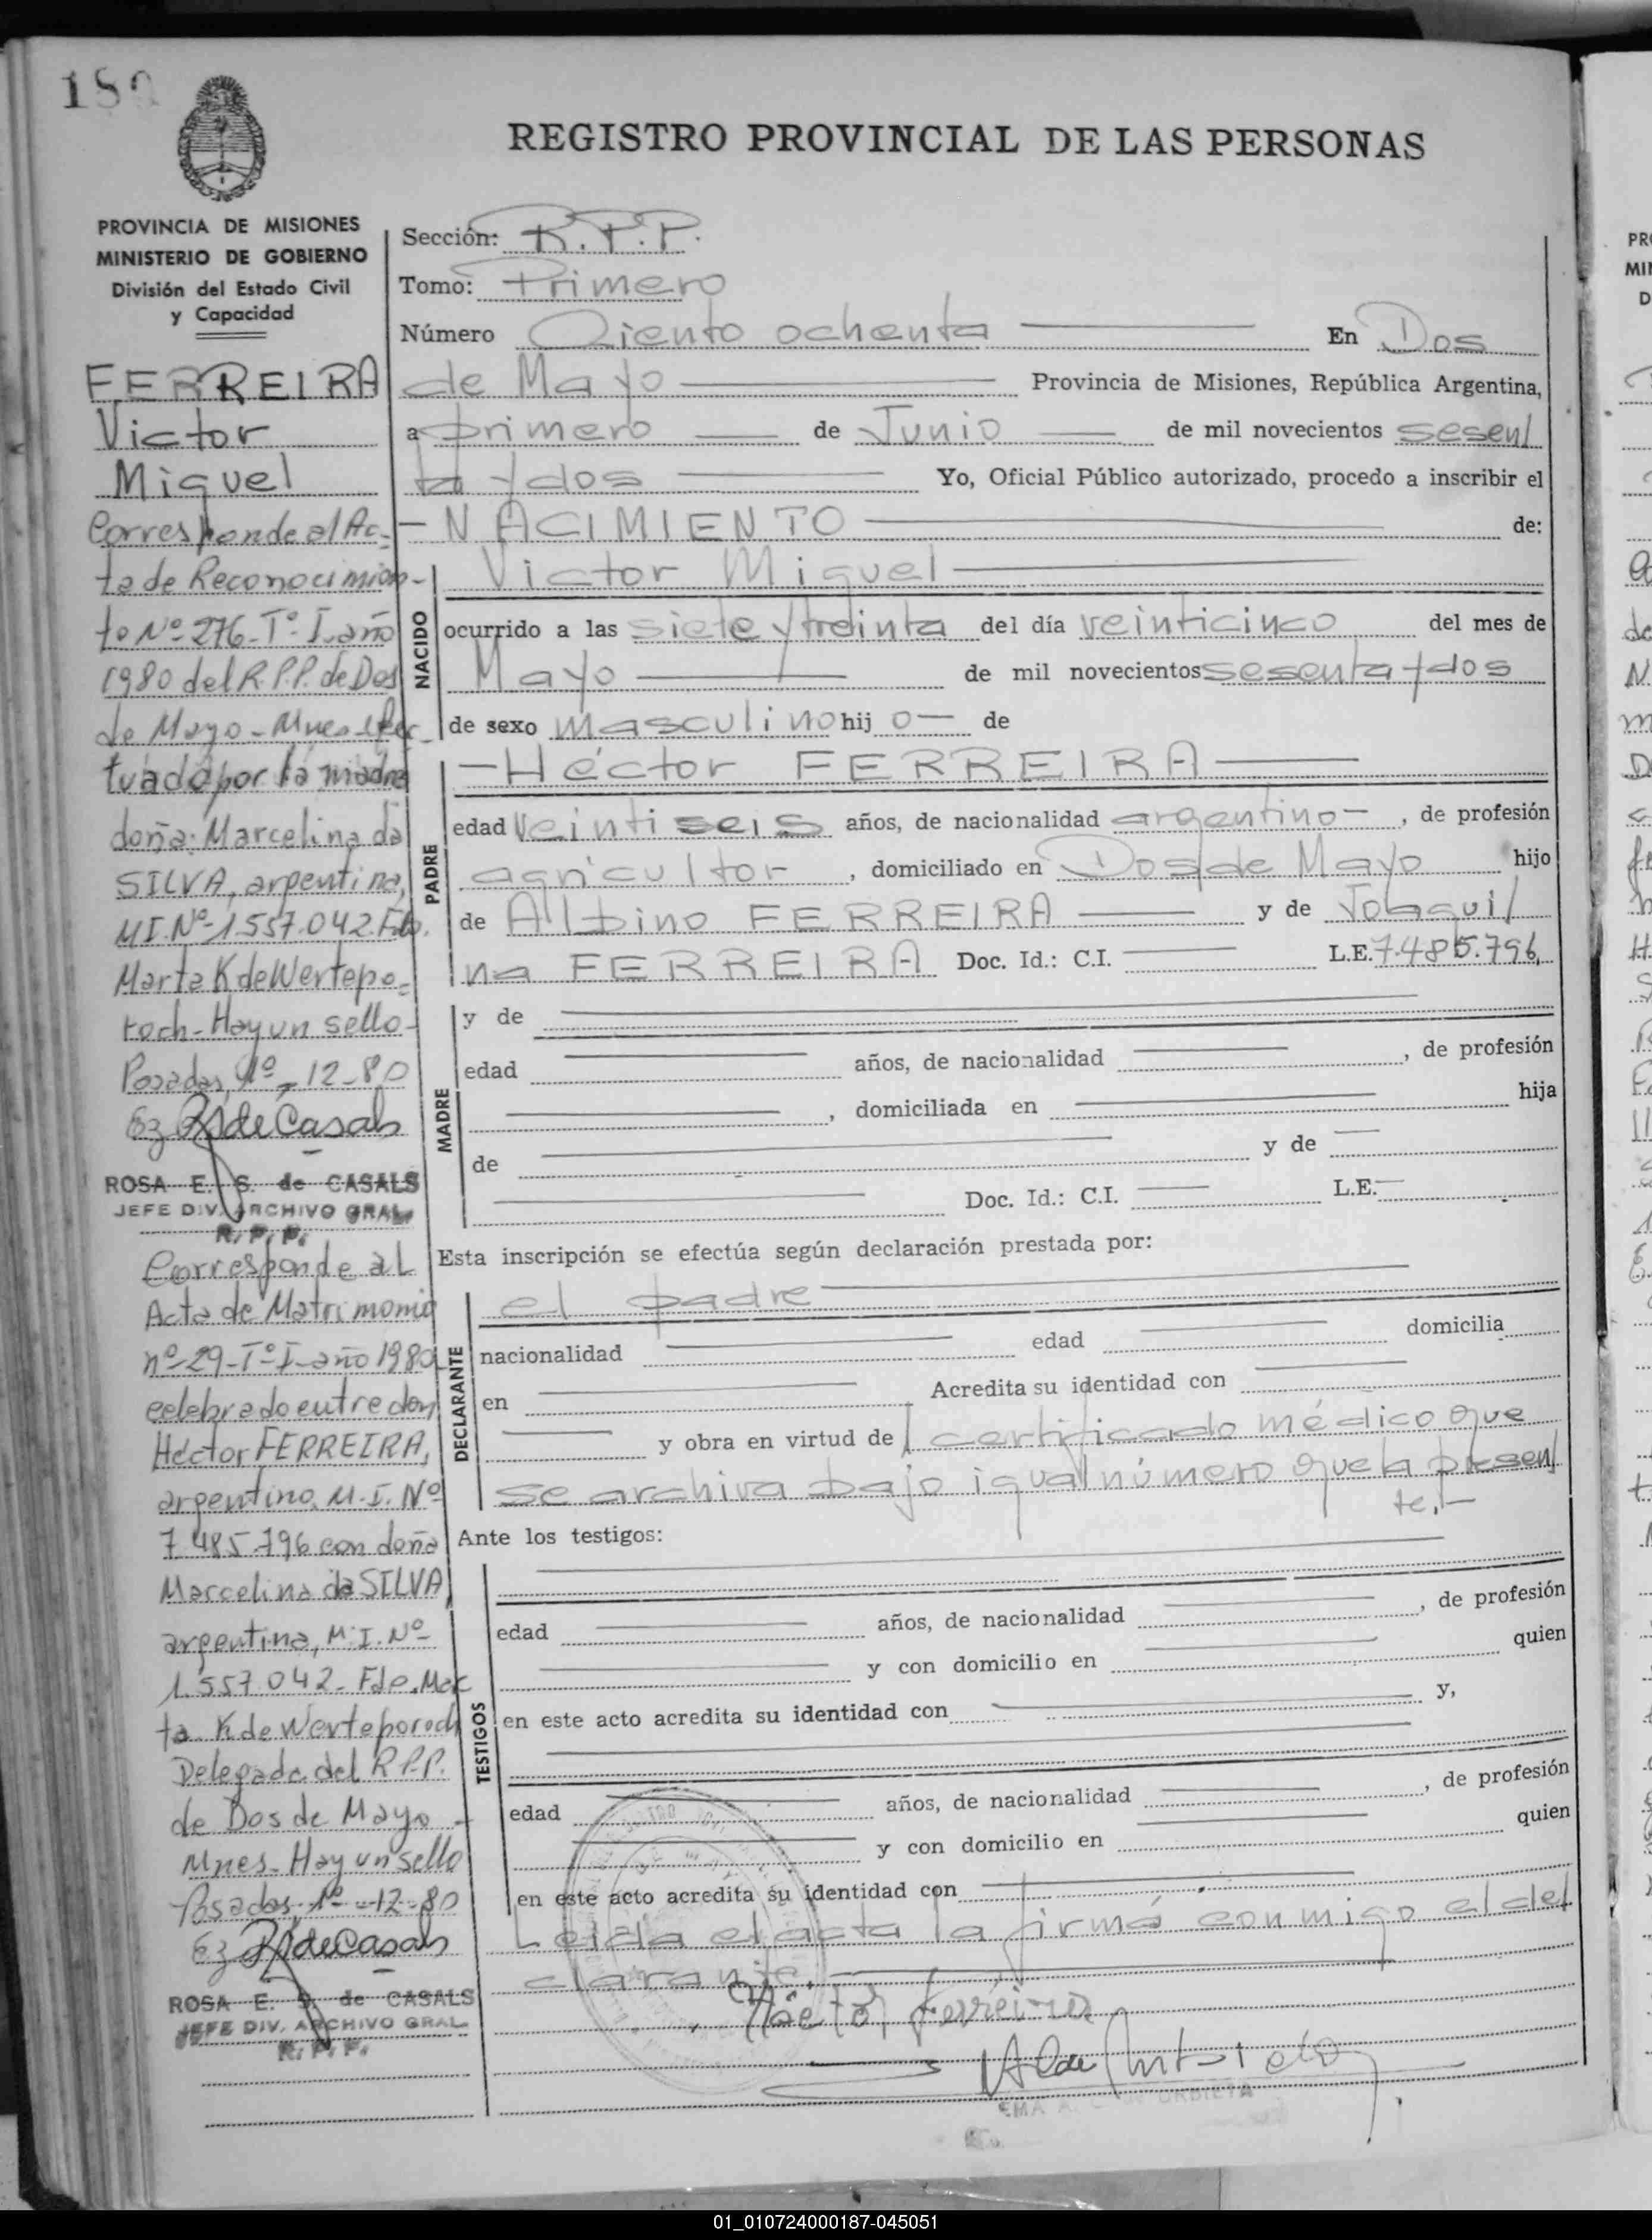 180
REGISTRO PROVINCIAL DE LAS PERSONAS
PROVINCIA DE MISIONES
MINISTERIO DE GOBIERNO
División del Estado Civil
y Capacidad
FERREIRA
Victor
Miguel
Corresponde al Ac-
ta de Reconocimien-
to Nº 276-Tº I-año
1980 del R.P.P. de Dos
de Mayo - Mnes- efec-
tuado por la madre
doña: Marcelina da
SILVA, argentina,
MI.Nº 1.557.042.Fdo.
Marta K de Wertepo-
roch- Hay un sello-
Posadas, 1º-12-80
ROSA E. S. de CASALS
JEFE DIV. ARCHIVO GRAL.
R.P.P.
Corresponde al
Acta de Matrimonio
nº-29-Tº-I-año 1980
celebrado entre don
Héctor FERREIRA,
argentino, M.I. Nº
7.485.796 con doña
Marcelina da SILVA,
argentina, M.I. Nº
1.557.042- Fdo. Mar
ta K de Werteporoch
Delegada del R.P.P.
de Dos de Mayo -
Mnes- Hay un sello
Posadas, 1º-12-80
ROSA E. S. de CASALS
JEFE DIV. ARCHIVO GRAL.
R.P.P.
Sección: R.P.P.
Tomo: Primero
Número Ciento ochenta En Dos
de Mayo Provincia de Misiones, República Argentina,
a primero de Junio de mil novecientos sesen/
ta y dos Yo, Oficial Público autorizado, procedo a inscribir el
-NACIMIENTO de:
NACIDO
Victor Miguel
ocurrido a las siete y treinta del día veinticinco del mes de
Mayo de mil novecientos sesenta y dos
de sexo masculino hij o- de
PADRE
-Héctor FERREIRA
edad veintiseis años, de nacionalidad argentino- , de profesión
agricultor , domiciliado en Dos de Mayo hijo
de Albino FERREIRA y de Joaquil/
na FERREIRA Doc. Id.: C.I. L.E. 7.485.796,
MADRE
y de
edad años, de nacionalidad , de profesión
, domiciliada en hija
de y de
Doc. Id.: C.I. L.E.
Esta inscripción se efectúa según declaración prestada por:
DECLARANTE
el padre
nacionalidad edad domicilia
en Acredita su identidad con
y obra en virtud de certificado médico que
se archiva bajo igual número que la presen/
te.-
Ante los testigos:
TESTIGOS
edad años, de nacionalidad , de profesión
y con domicilio en quien
en este acto acredita su identidad con y,
edad años, de nacionalidad , de profesión
y con domicilio en quien
en este acto acredita su identidad con
Leída el acta la firma conmigo el de/
clarante.
Héctor Ferreira
01_010724000187-045051